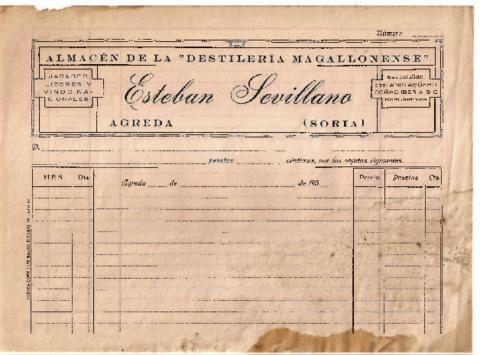 Número
ALMACÉN DE LA "DESTILERÍA MAGALLONENSE"
JARABES
LICORES Y
VINOS NA-
CIONALES
Esteban Sevillano
Especialidad
COÑAC IBERIA S C
AGREDA (SORIA)
D.
pesetas céntimos, por los objetos siguientes.
MES Día Agreda de de 195 Precio Pesetas Cts